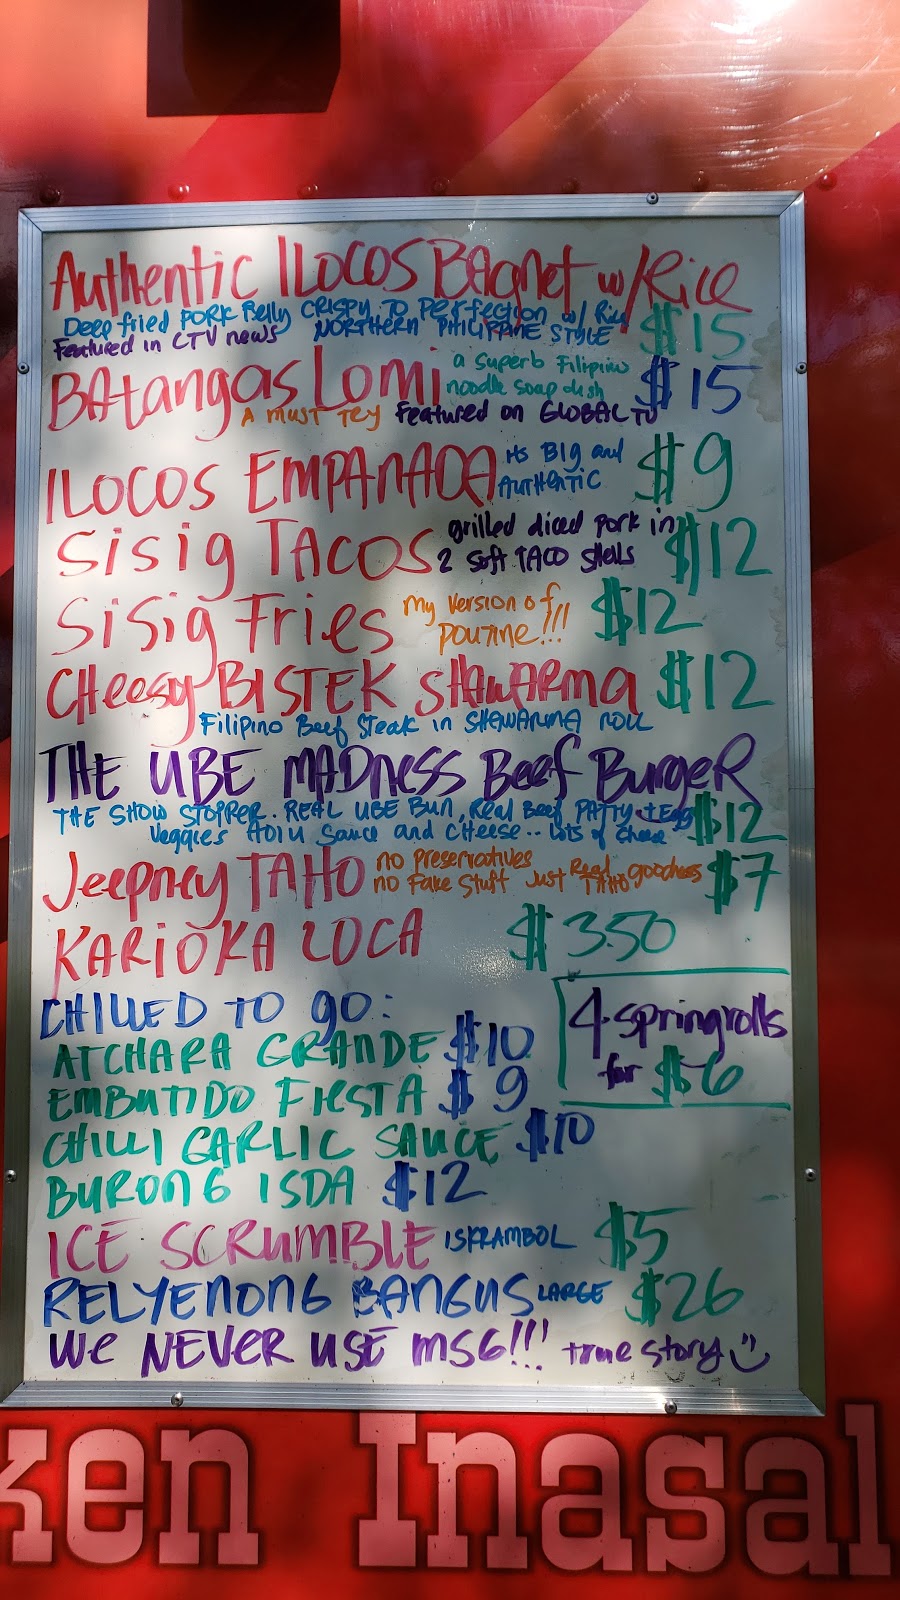 Authentic ILOCOS BAgnet w/Rice
Deep fried PORK Belly CRISPY TO Perfection w/ Rice
Featured in CTV news NORTHERN PHILIPPINE STYLE $15
BAtangas Lomi a superb Filipino noodle soap dish $15
A MUST TRY Featured on GLOBAL TV
ILOCOS EMPANADA its BIG and AUTHENTIC $9
SiSig TACOS grilled diced pork in 2 soft TACO shells $12
SiSig Fries my version of poutine!!! $12
CHeesy BISTEK SHAWARMA $12
Filipino Beef Steak in SHAWARMA roll
THE UBE MADness Beef BurgeR
THE SHOW STOPPER. REAL UBE Bun, Real Beef PATTY + Egg
Veggies sauce and cheese.. lots of cheese $12
Jeepney TAHO no preservatives $7
no Fake stuff Just Real TAHO goodness
KARIOKA LOCA $3.50
CHILLED TO go:
ATCHARA GRANDE $10
EMBUTIDO FIESTA $9
4 springrolls
for $6
CHILLI GARLIC SAUCE $10
BURONG ISDA $12
ICE SCRUMBLE ISKRAMBOL $5
RELYENONG BANGUS LARGE $26
We NEVER USE MSG!!! true story
ken Inasal